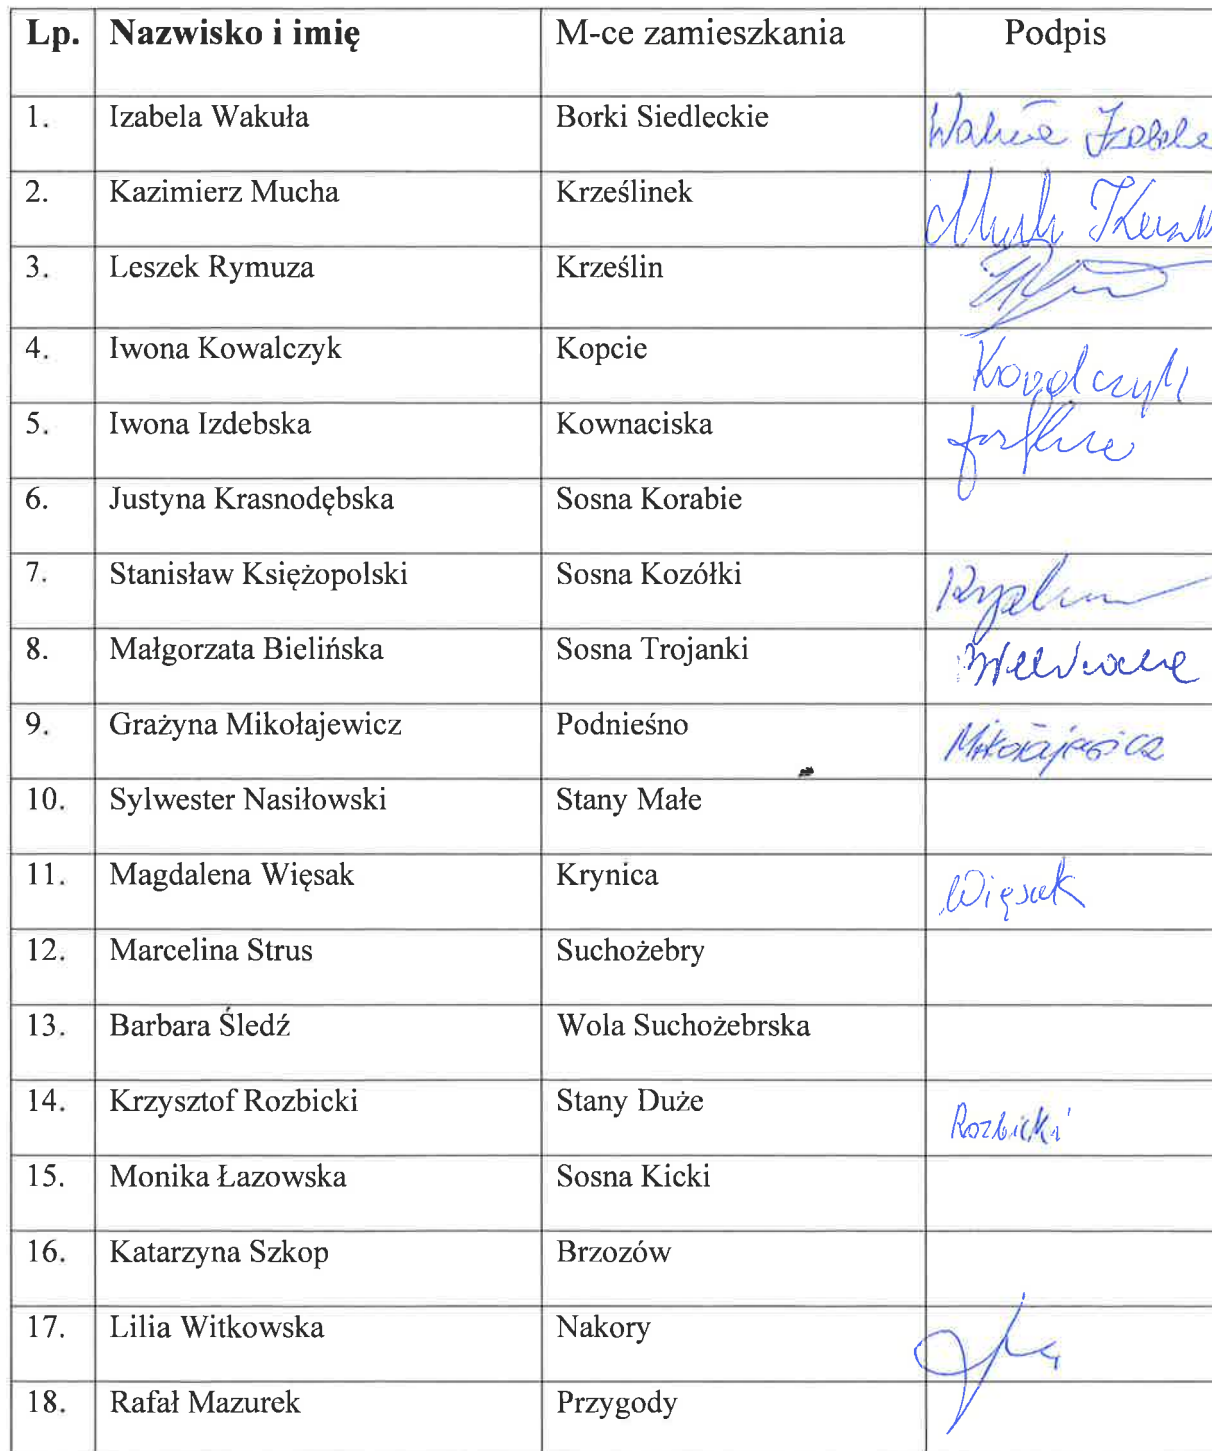 Lp. Nazwisko i imię M-ce zamieszkania Podpis
1. Izabela Wakuła Borki Siedleckie
2. Kazimierz Mucha Krześlinek
3. Leszek Rymuza Krześlin
4. Iwona Kowalczyk Kopcie Kowalczyk
5. Iwona Izdebska Kownaciska
6. Justyna Krasnodębska Sosna Korabie
7. Stanisław Księżopolski Sosna Kozółki
8. Małgorzata Bielińska Sosna Trojanki
9. Grażyna Mikołajewicz Podnieśno Mikołajewicz
10. Sylwester Nasiłowski Stany Małe
11. Magdalena Więsak Krynica Więsak
12. Marcelina Strus Suchożebry
13. Barbara Śledź Wola Suchożebrska
14. Krzysztof Rozbicki Stany Duże Rozbicki
15. Monika Łazowska Sosna Kicki
16. Katarzyna Szkop Brzozów
17. Lilia Witkowska Nakory
18. Rafał Mazurek Przygody